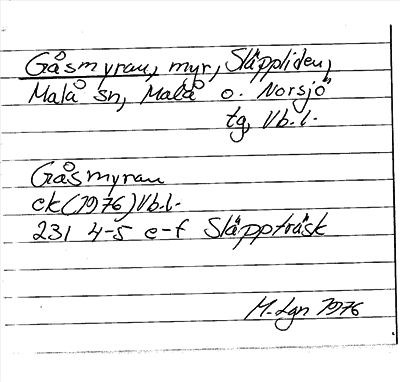 Gåsmyran, myr, Släppliden,
Malå sn, Malå o. Norsjö
tg, Vb.l.
Gåsmyran
ek (1976) Vb.l.
231 4-5 e-f Släppträsk
M. Lgn 1976